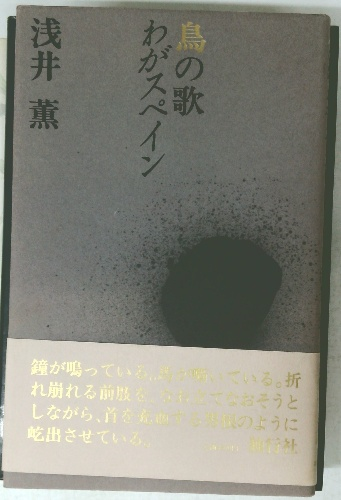 鳥の歌
わがスペイン
浅井 薫
鐘が鳴っている。
いている。折
れ崩れる前肢を
てなおそうと
しながら、首を
のように
屹出させている。